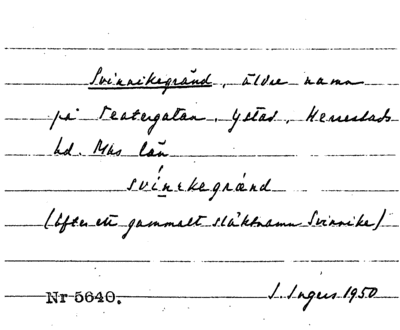 Svinnikegränd, äldre namn
på Teatergatan, Ystad, Herrestads
hd. Mlms län
svínikegränd
(efter ett gammalt släktnamn Svinnike)
Nr 5640. I. Ingers 1950